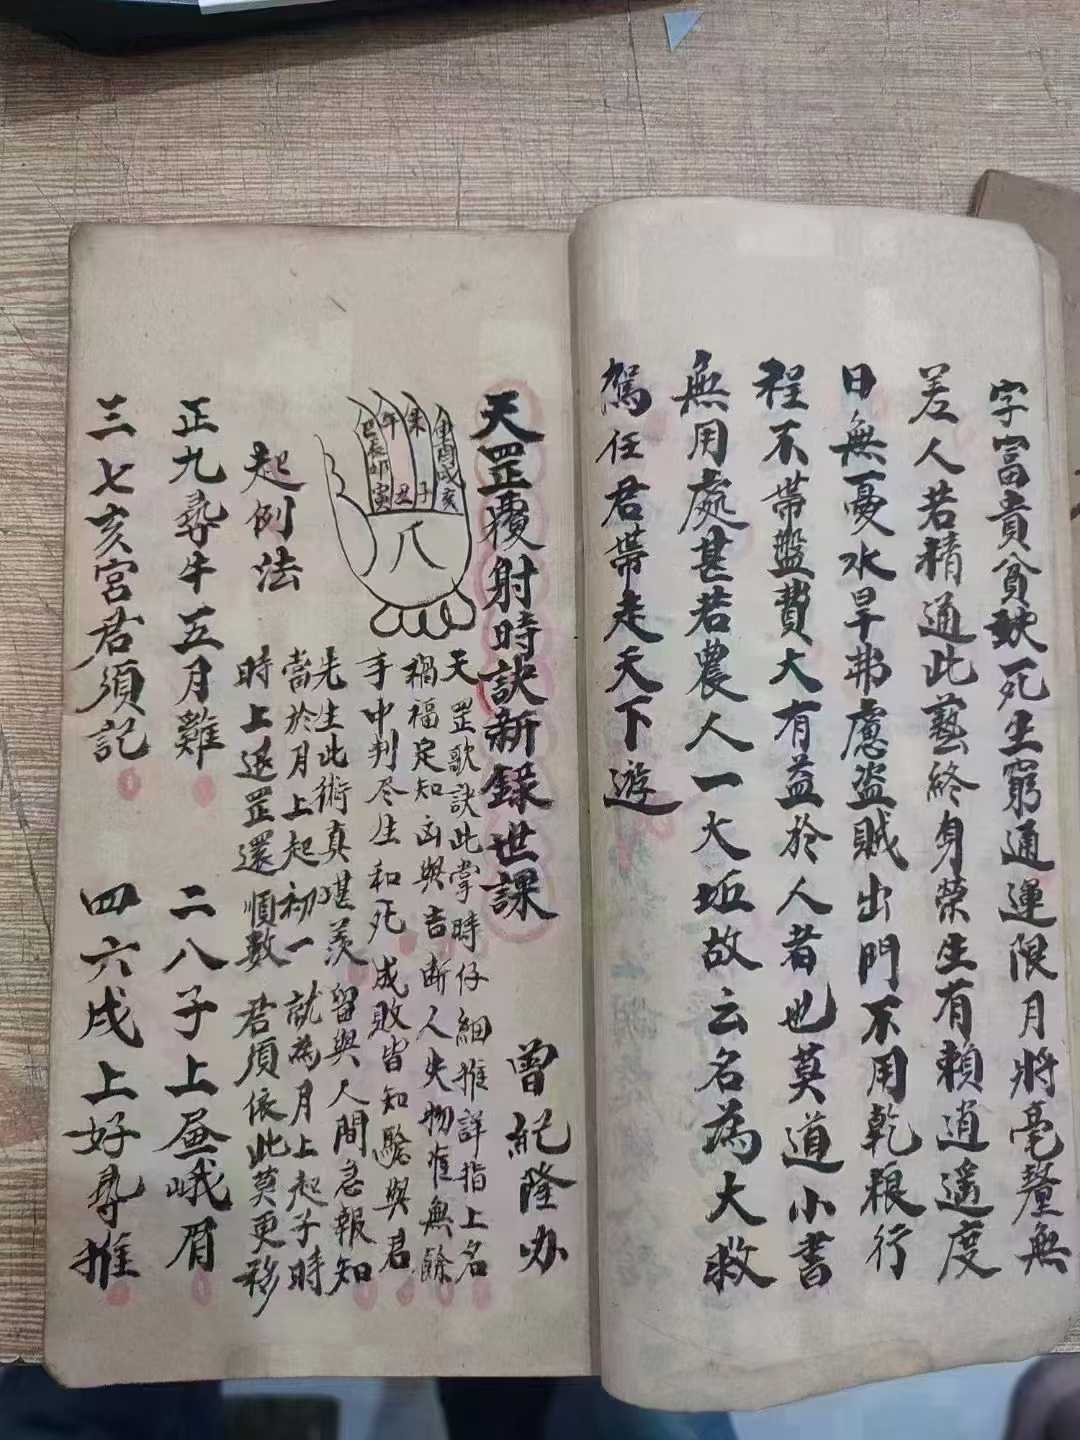 字富貴貧缺死生窮通運限月將毫釐無
差人若精通此藝終身榮生有賴逍遙度
日無憂水旱弗慮盜賊出門不用乾粮行
程不帶盤費大有益於人者也莫道小書
無用處甚若農人一大坵故云名為大救
駕任君帶走天下遊
天罡覆射時訣新錄世課
曾紀隆办
申酉戌亥
未
子
午
丑
巳辰卯寅
天罡歌訣此掌時仔細推詳指上名
禍福定知凶與吉断人失物准無餘
手中判尽生和死 成敗皆知驗與君
先生此術真堪羨 留與人間急報知
當於月上起初一 就為月上起子時
時上退罡還順數 君須依此莫更移
起例法
正九尋牛五月雞 二八子上画峨眉
三七亥宮君須記 四六戌上好尋推